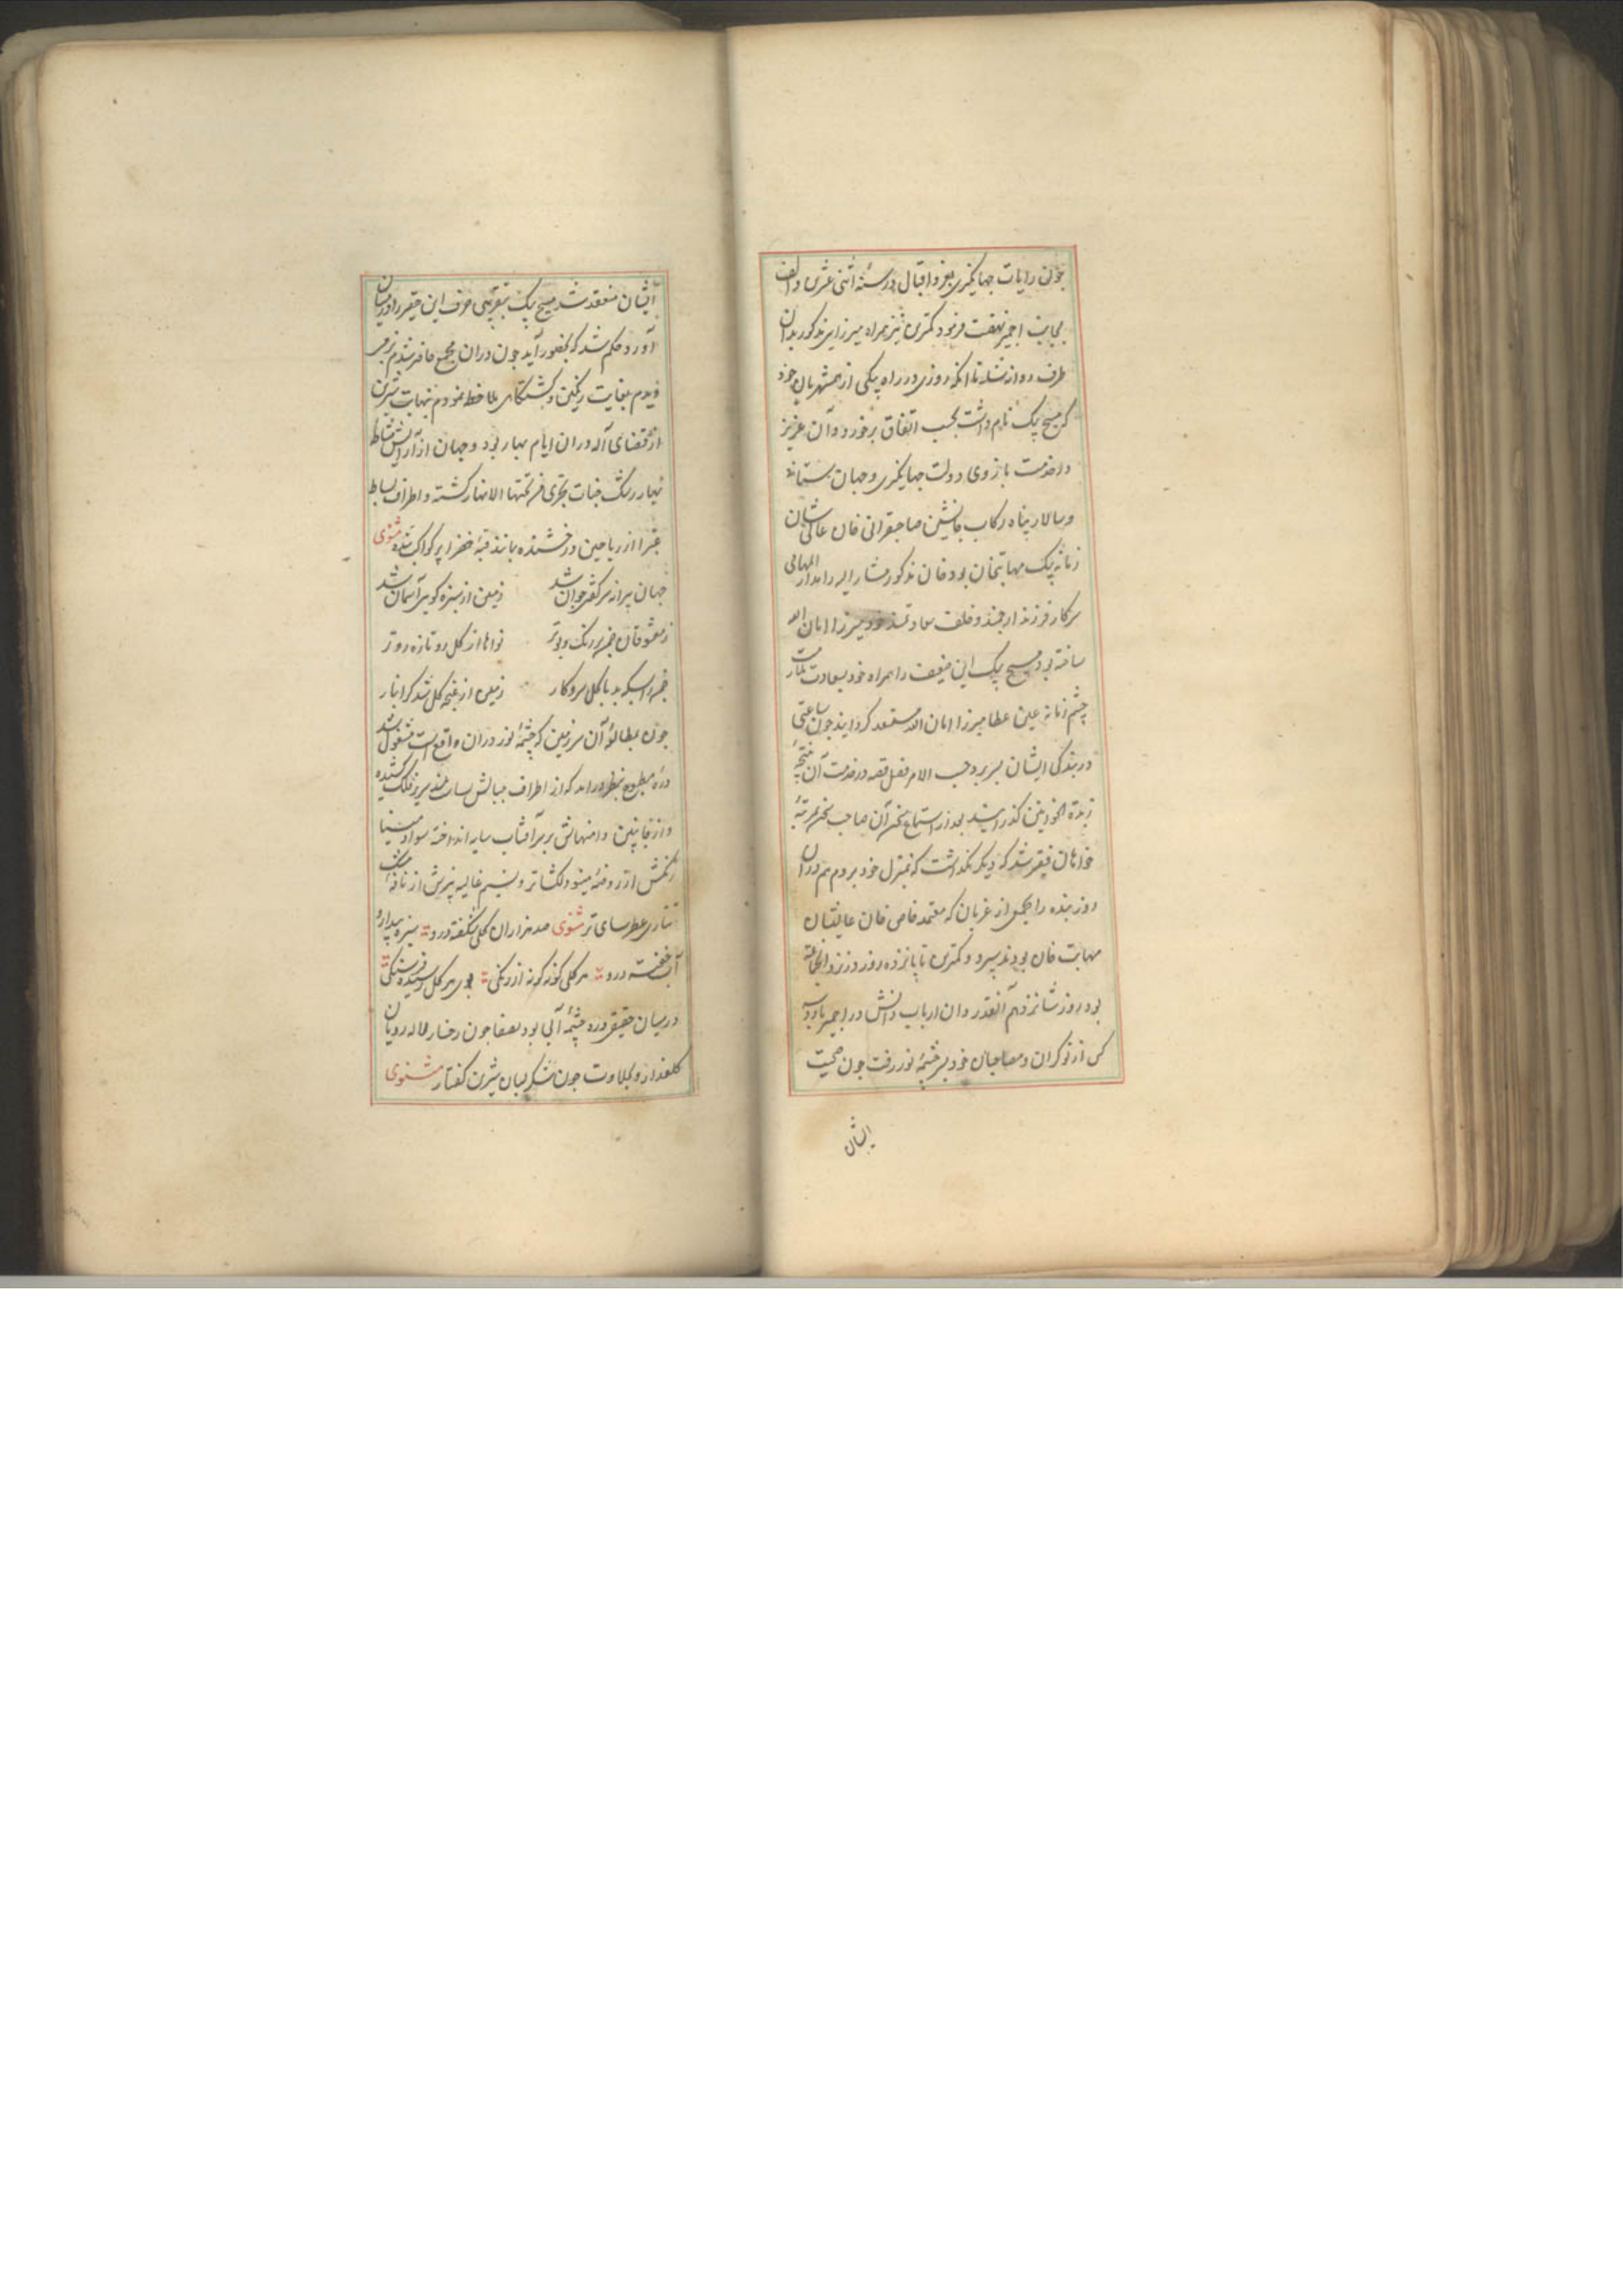 چون رایات جهانگیری بعز و اقبال در سنهٔ اثنی عشرین و الف
بجانب اجمیر نهضت فرمود کمترین نیز همراه میرزای مذکور بدان
طرف روانه شد تا آنکه روزی در راه بیکی از همشهریان خود
که مسیح بیک نام داشت بحسب اتفاق برخورد و آن عزیز
در خدمت بازوی دولت جهانگیری و جهان ستانی
و سالار سپاه رکاب جانشین صاحبقرانی خان عالی شان
زمانه بیک مهابتخان بود خان مذکور مشار الیه را مدار المهامی
سرکار فرزند ارجمند و خلف سعادتمند خود میرزا امان الله
ساخته بود مسیح بیک این ضعیف را همراه خود بسعادت ملازمت
چشم زمانه عین عطا میرزا امان الله مستعد گردانید چون ساعتی
در بندگی ایشان بسر برد حسب الامر فصل قصه در خدمت آن نتیجهٔ
زبدة الخوانین گذرانید بعد از استماع سخن آن صاحب سخن بمرتبهٔ
خواهان فقیر شد که دیگر نگذاشت که بمنزل خود بروم هم دران
روز بنده را بجمعی از عزیزان که معتمد خاص خان عالیشان
مهابت خان بودند سپرد و کمترین تا پانزده روز در نزد آنجماعه
بود روز شانزدهم آنقدر دان ارباب دانش در اجمیر با دو سه
کس از نوکران و مصاحبان خود بسر چشمهٔ نور رفت چون صحبت
ایشان
ایشان منعقد شد مسیح بیک بتقریبی حرف این حقیر را در میان
آورد حکم شد که بحضور آید چون دران مجمع حاضر شدم بزمی
دیدم بغایت رنگین و گشتگاهی ملاحظه نمودم بنهایت شیرین
از قضای آله دران ایام بهار بود و جهان از آرایش نشاط
بهار رشک جنات تجری من تحتها الانهار گشته و اطراف بساط
غبرا از ریاحین درخشنده مانند قبهٔ خضرا پر کواکب شده مثنوی
جهان پیرانه سر گفتی جوان شد زمین از سبزه گویی آسمان شد
ز معشوقان چمن پر رنگ و بوتر نواها از گل رو تازه روتر
چمن را بسکه بد با گل سروکار زمین از غنچه گل شد گرانبار
چون بمطالعهٔ آن سرزمین که چشمهٔ نور دران واقع است مشغول شد
درهٔ مطبوع بنظر درامد که از اطراف جبالش سایبان بلند سر بر فلک کشیده
و از جانبین دامنهایش بر سر آفتاب سایه انداخته سواد مینا
رنگش از روضهٔ مینو دلگشاتر و نسیم غالیه بیزش از نافهٔ مشک
تتاری عطرسای تر مثنوی صد هزاران گل شگفته درو سبزه بیدار و
آب خفته درو هر گلی گونه گونه از رنگی بوی هر گل رسیده فرسنگی
در میان حقیقی دره چشمهٔ آبی بود بصفا چون رخسار لاله رویان
گلعذار و بحلاوت چون شکر لبان شیرین گفتار مثنوی